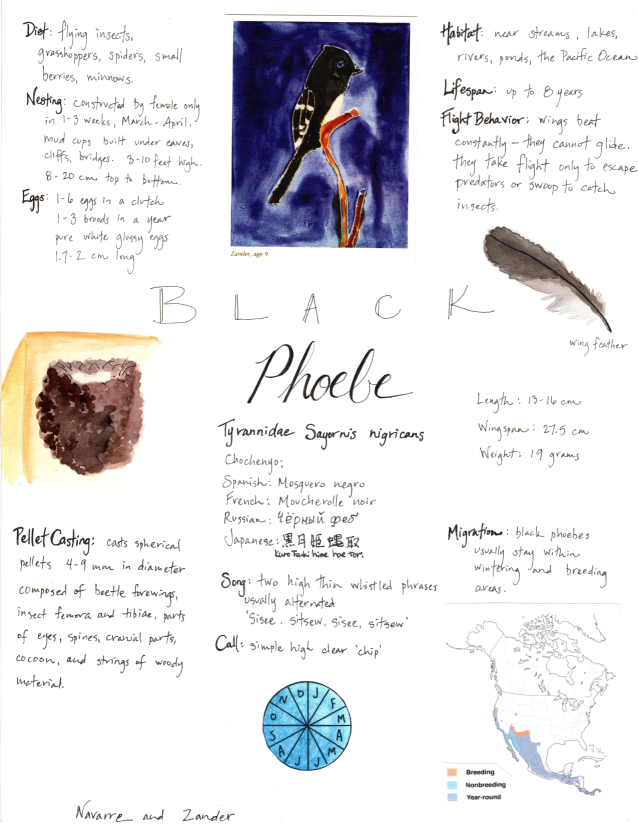 Diet: flying insects,
grasshoppers, spiders, small
berries, minnows.
Nesting: constructed by female only
in 1-3 weeks, March-April.
mud cups built under eaves,
cliffs, bridges. 3-10 feet high.
8-20 cm top to bottom.
Eggs: 1-6 eggs in a clutch
1-3 broods in a year
pure white glossy eggs
1.7-2 cm long
Zander, age 9
Habitat: near streams, lakes,
rivers, ponds, the Pacific Ocean
Lifespan: up to 8 years
Flight Behavior: wings beat
constantly - they cannot glide.
they take flight only to escape
predators or swoop to catch
insects.
wing feather
BLACK
Phoebe
Tyrannidae Sayornis nigricans
Chochenyo:
Spanish: Mosquero negro
French: Moucherolle noir
Russian: Чёрный феб
Japanese: 黒月姫蝿取
Kuro Tsuki hime hae Tori
Length: 13-16 cm
Wingspan: 27.5 cm
Weight: 19 grams
Pellet Casting: casts spherical
pellets 4-9 mm in diameter
composed of beetle forewings,
insect femora and tibiae, parts
of eyes, spines, cranial parts,
cocoon, and strings of woody
material.
Song: two high thin whistled phrases
usually alternated
'Sisee. sitsew, sisee, sitsew'
Call: simple high clear 'chip'
Migration: black phoebes
usually stay within
wintering and breeding
areas.
J F M A M J J A S O N D
Breeding
Nonbreeding
Year-round
Navarre and Zander